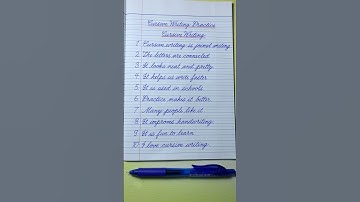 Cursive Writing Practice
Cursive Writing
1. Cursive writing is joined writing.
2. The letters are connected.
3. It looks neat and pretty.
4. It helps us write faster.
5. It is used in schools.
6. Practice makes it better.
7. Many people like it.
8. It improves handwriting.
9. It is fun to learn.
10. I love cursive writing.